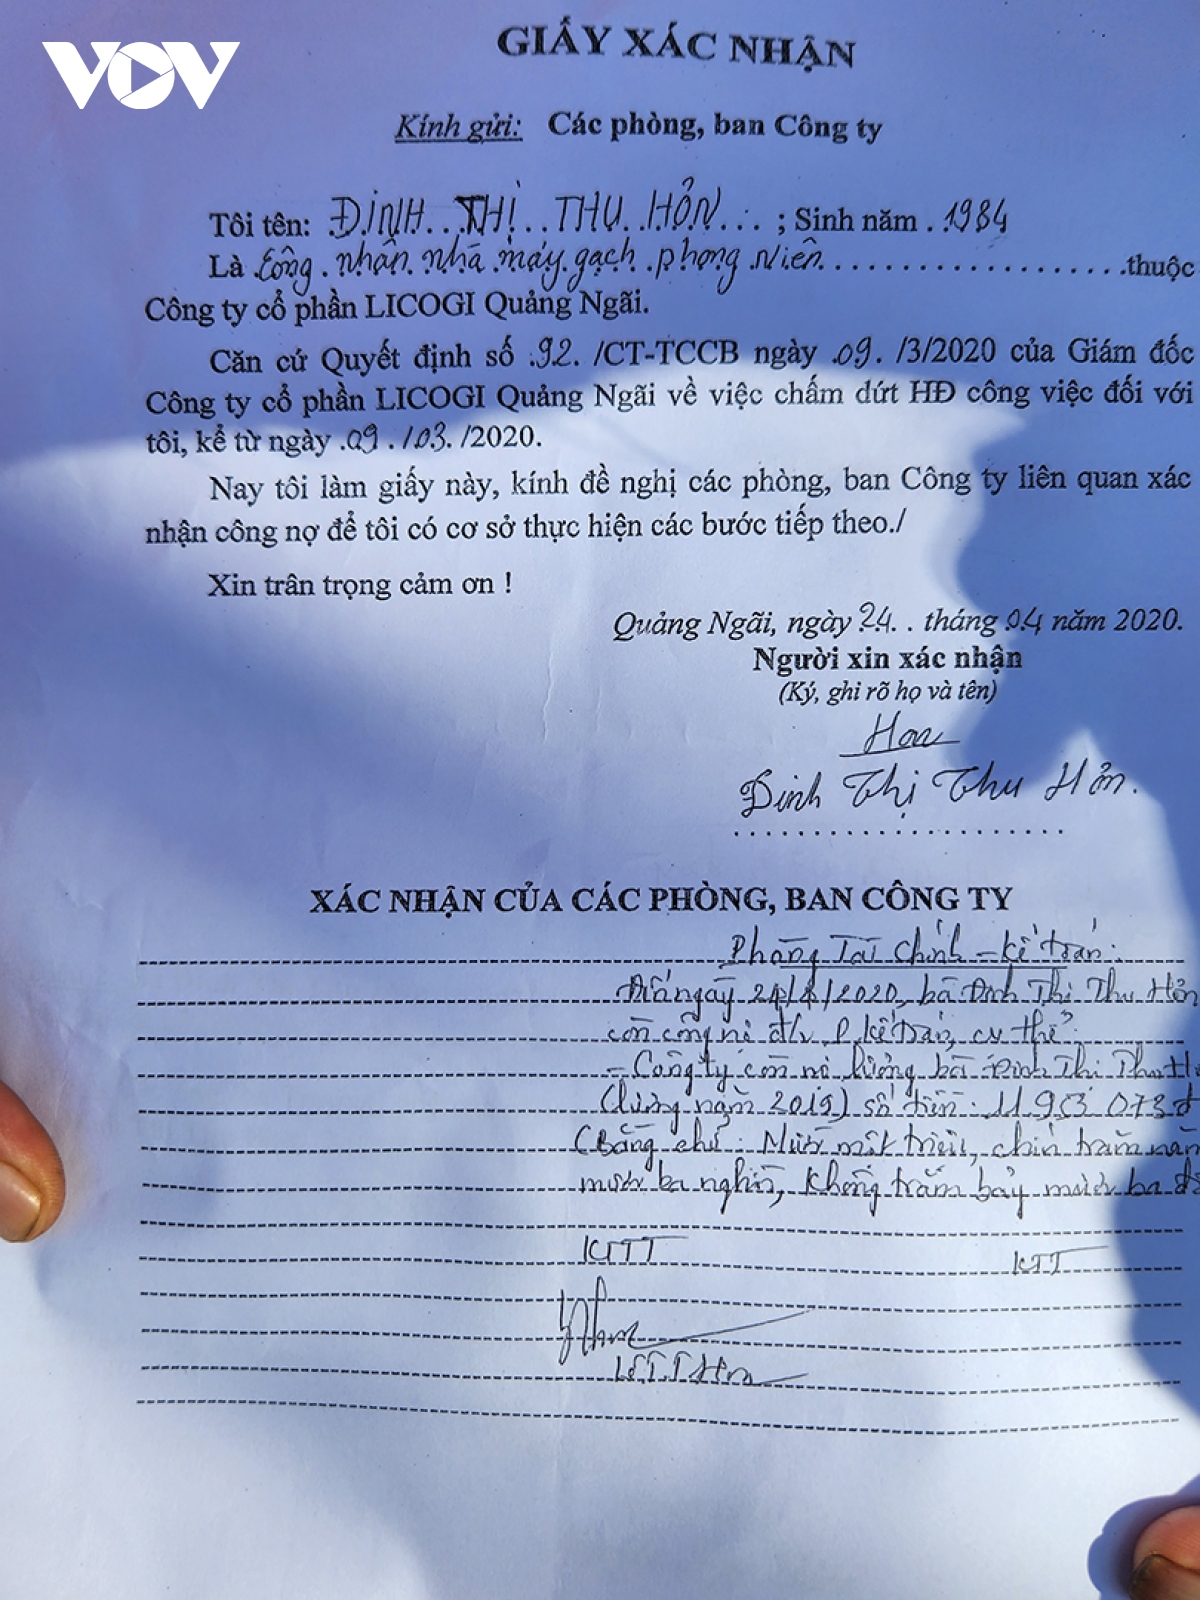 VOV
GIẤY XÁC NHẬN
Kính gửi: Các phòng, ban Công ty
Tôi tên: ĐINH THỊ THU HỎN ; Sinh năm 1984
Là Công nhân nhà máy gạch phong niên thuộc
Công ty cổ phần LICOGI Quảng Ngãi.
Căn cứ Quyết định số 92 /CT-TCCB ngày 09 /3/2020 của Giám đốc
Công ty cổ phần LICOGI Quảng Ngãi về việc chấm dứt HĐ công việc đối với
tôi, kể từ ngày 09 /03 /2020.
Nay tôi làm giấy này, kính đề nghị các phòng, ban Công ty liên quan xác
nhận công nợ để tôi có cơ sở thực hiện các bước tiếp theo./
Xin trân trọng cảm ơn !
Quảng Ngãi, ngày 24 tháng 04 năm 2020.
Người xin xác nhận
(Ký, ghi rõ họ và tên)
Đinh Thị Thu Hỏn.
XÁC NHẬN CỦA CÁC PHÒNG, BAN CÔNG TY
Phòng Tài chính - Kế toán:
Đến ngày 24/4/2020, bà Đinh Thị Thu Hỏn
còn công nợ P. kế toán, cụ thể:
- Công ty còn nợ lương bà Đinh Thị Thu H
(lương năm 2019) số tiền: 11 953 073đ
(Bằng chữ: Mười một triệu, chín trăm năm
mươi ba nghìn, không trăm bảy mươi ba đồ
KTTT KTT